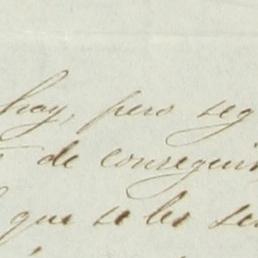 hay, pero seg
de conseguir
que se les ser